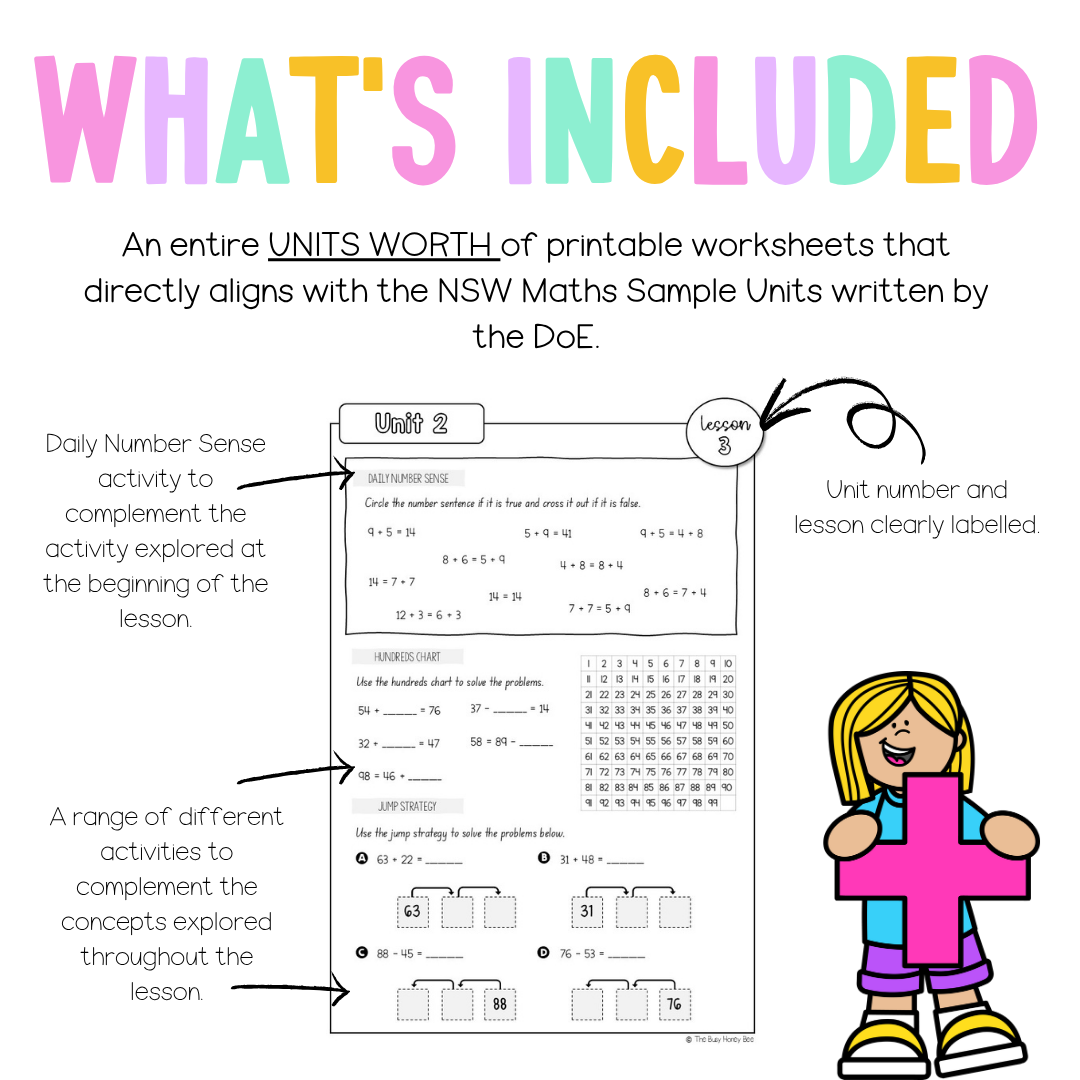 WHAT'S INCLUDED
An entire UNITS WORTH of printable worksheets that
directly aligns with the NSW Maths Sample Units written by
the DoE.
Daily Number Sense
activity to
complement the
activity explored at
the beginning of the
lesson.
Unit 2
Lesson
3
Unit number and
lesson clearly labelled.
DAILY NUMBER SENSE
Circle the number sentence if it is true and cross it out if it is false.
9 + 5 = 14
5 + 9 = 41
9 + 5 = 4 + 8
8 + 6 = 5 + 9
4 + 8 = 8 + 4
14 = 7 + 7
14 = 14
8 + 6 = 7 + 4
12 + 3 = 6 + 3
7 + 7 = 5 + 9
HUNDREDS CHART
Use the hundreds chart to solve the problems.
54 + ______ = 76
37 - ______ = 14
32 + ______ = 47
58 = 89 - ______
98 = 46 + ______
1 2 3 4 5 6 7 8 9 10
11 12 13 14 15 16 17 18 19 20
21 22 23 24 25 26 27 28 29 30
31 32 33 34 35 36 37 38 39 40
41 42 43 44 45 46 47 48 49 50
51 52 53 54 55 56 57 58 59 60
61 62 63 64 65 66 67 68 69 70
71 72 73 74 75 76 77 78 79 80
81 82 83 84 85 86 87 88 89 90
91 92 93 94 95 96 97 98 99
A range of different
activities to
complement the
concepts explored
throughout the
lesson.
JUMP STRATEGY
Use the jump strategy to solve the problems below.
A 63 + 22 = ______
63
B 31 + 48 = ______
31
C 88 - 45 = ______
88
D 76 - 53 = ______
76
© The Busy Honey Bee